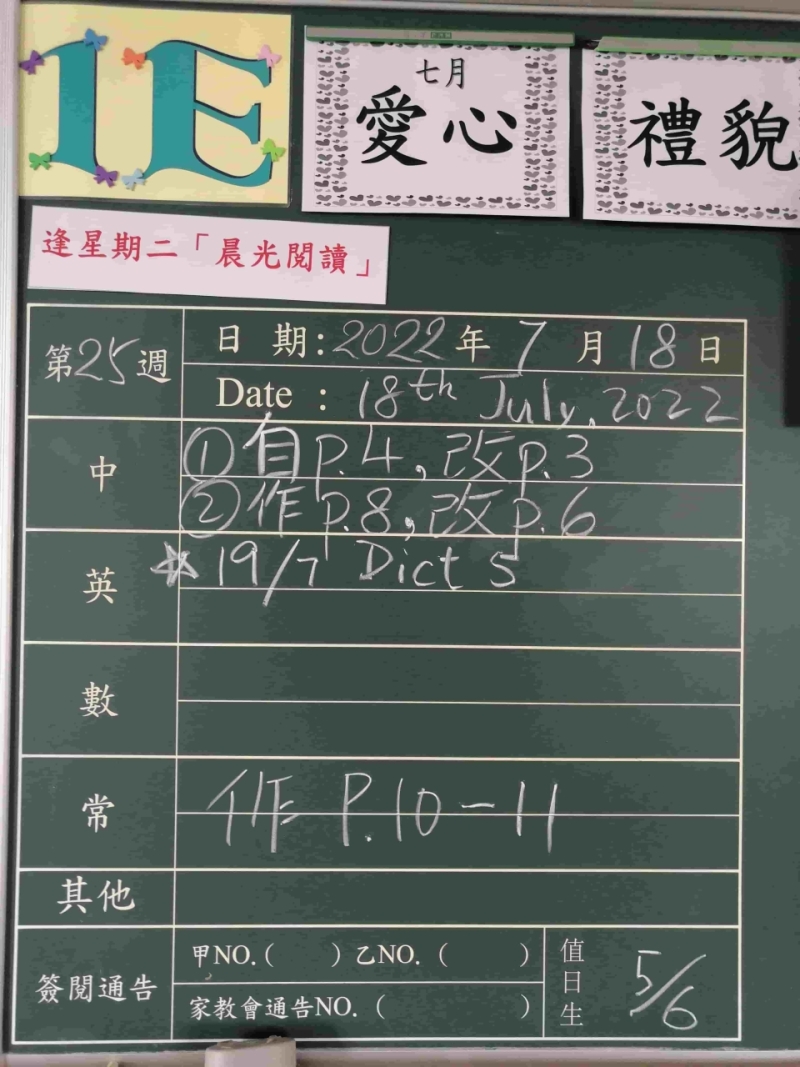 1E
七月
愛心
禮貌
逢星期二「晨光閱讀」
第25週
日 期:2022年7月18日
Date : 18th July, 2022
中
①自p.4,改p.3
②作p.8,改p.6
英
☆19/7 Dict 5
數
常
作 P.10-11
其他
簽閱通告
甲NO.( ) 乙NO.( )
家教會通告NO.( )
值日生
5/6